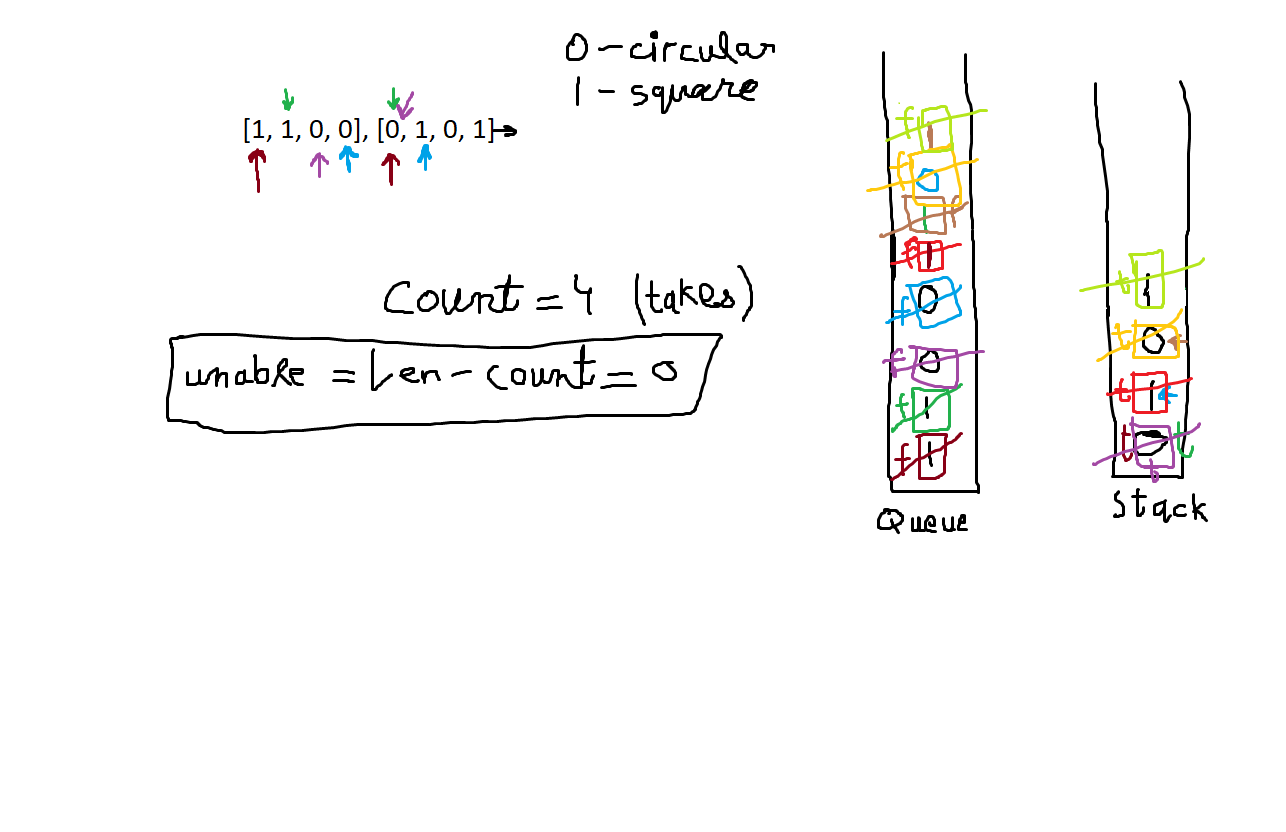 0 - circular
1 - square
[1, 1, 0, 0], [0, 1, 0, 1]
Count = 4 (takes)
unable = Len - count = 0
f 1
f 0
1 f
f 1
f 0
f 0
f 1
f 1
Queue
t 1
t 0
t 1
t 0 t
t
Stack